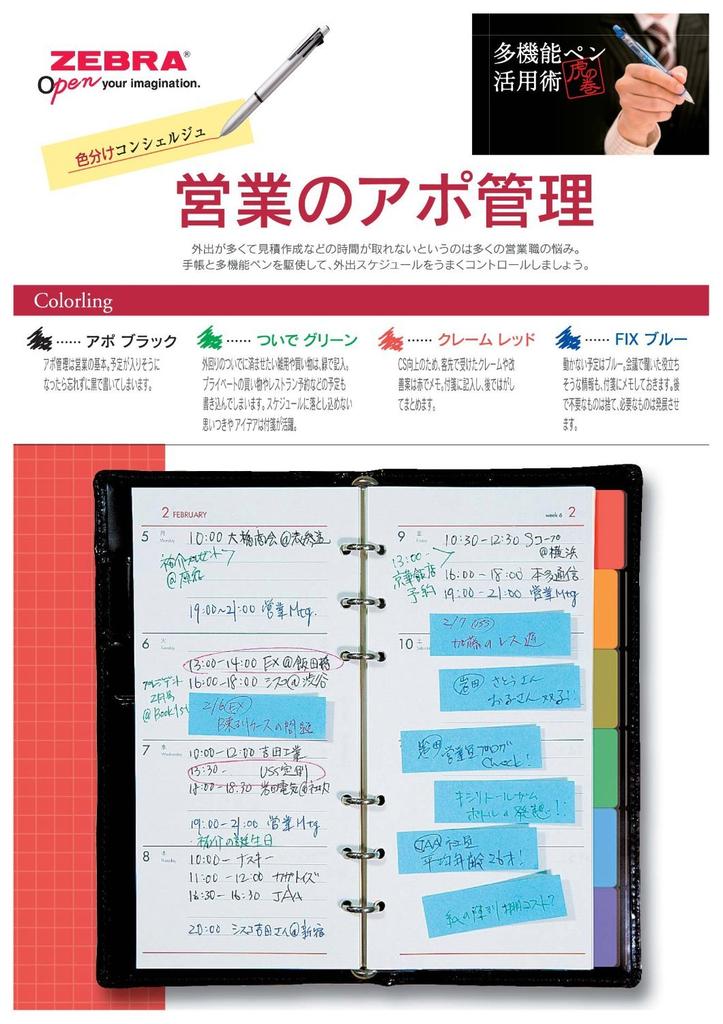 ZEBRA®
Open your imagination.
多機能ペン
活用術
虎の巻
色分けコンシェルジュ
営業のアポ管理
外出が多くて見積作成などの時間が取れないというのは多くの営業職の悩み。
手帳と多機能ペンを駆使して、外出スケジュールをうまくコントロールしましょう。
Colorling
…… アポ ブラック
アポ管理は営業の基本。予定が入りそうに
なったら忘れずに黒で書いてしまいます。
…… ついで グリーン
外回りのついでに済ませたい雑用や買い物は、緑で記入。
プライベートの買い物やレストラン予約などの予定も
書き込んでしまいます。スケジュールに落とし込めない
思いつきやアイデアは付箋が活躍。
…… クレーム レッド
CS向上のため、客先で受けたクレームや改
善案は赤でメモ。付箋に記入し、後ではがし
てまとめます。
…… FIX ブルー
動かない予定はブルー。会議で聞いた役立ち
そうな情報も、付箋にメモしておきます。後
で不要なものは捨て、必要なものは発展させ
ます。
2 FEBRUARY
5 月 Monday
10:00 大橋商会@表参道
@原宿
19:00~21:00 営業Mtg.
6 火 Tuesday
13:00-14:00 EX@飯田橋
16:00-18:00 シスコ@渋谷
プレジデント
2月号
@Book1st
2/6 EX
7 水 Wednesday
10:00-12:00 吉田工業
13:30- USS定例
岩田電気@
19:00-21:00 営業Mtg
祐介の誕生日
8 木 Thursday
10:00- ナスキー
11:00-12:00 カサトイズ
16:30 JAA
20:00 シスコ吉田さん@新宿
week 6 2
9 金 Friday
10:30-12:30 Sコープ
@横浜
13:00-
京華飯店
予約
16:00-18:00 本多通信
19:00-21:00 営業Mtg
10 土
2/7 USS
加藤のレス遅
岩田 さとうさん
お子さん双子!!
営業室ブログ
Check!
キシリトールガム
ボトルの発想!!
JAA 社員
平均年齢26才!
私の陣割 棚コスト?